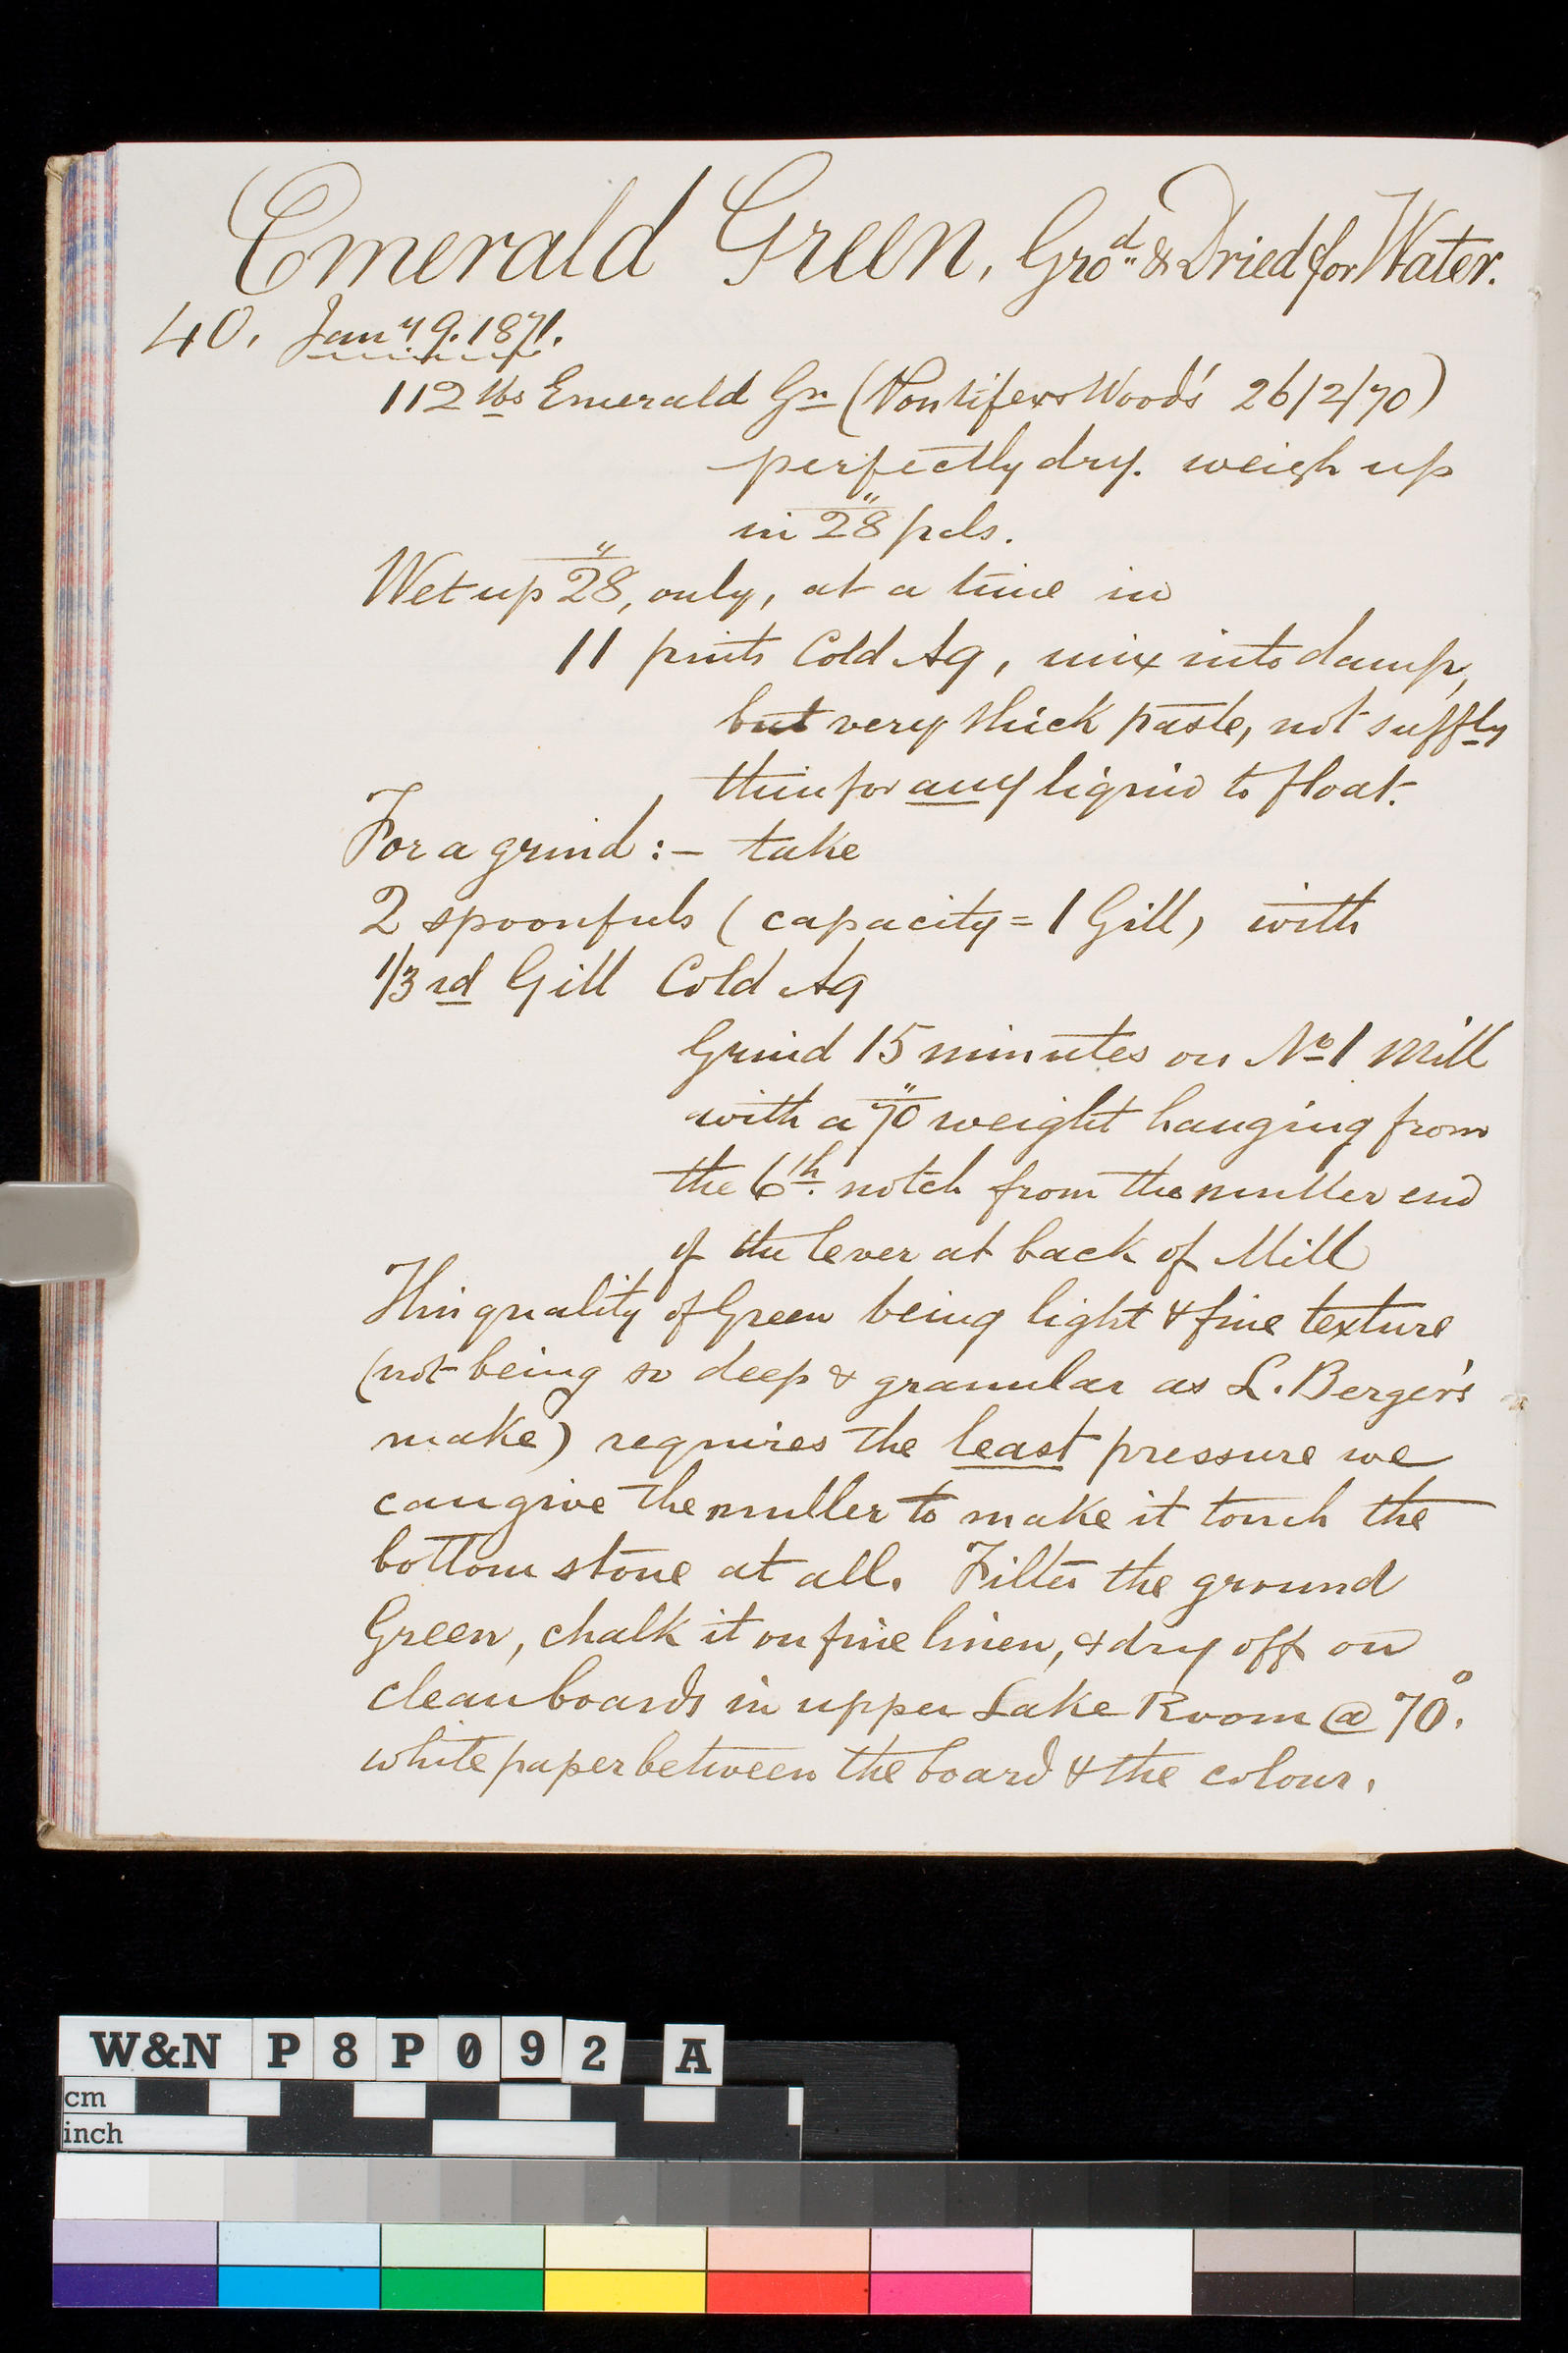 Emerald Green, Gro.d & Dried for Water.
40. Jany 9. 1871.
112 lbs Emerald Gn (Pontifex & Wood's 26/2/70)
perfectly dry. weigh up
in 28" pcls.
Wet up 28", only, at a time in
11 pints Cold Aq, mix into damp,
but very thick paste, not suffly
thin for any liquid to float.
For a grind :- take
2 spoonfuls (capacity = 1 Gill) with
1/3rd Gill Cold Aq
Grind 15 minutes on No 1 Mill
with a 70" weight hanging from
the 6th. notch from the muller end
of the lever at back of Mill
This quality of Green being light & fine texture
(not being so deep & granular as L. Berger's
make) requires the least pressure we
can give the muller to make it touch the
bottom stone at all. Filter the ground
Green, chalk it on fine linen, & dry off on
clean boards in upper Lake Room @ 70°.
white paper between the board & the colour.
W&N P8P092 A
cm
inch